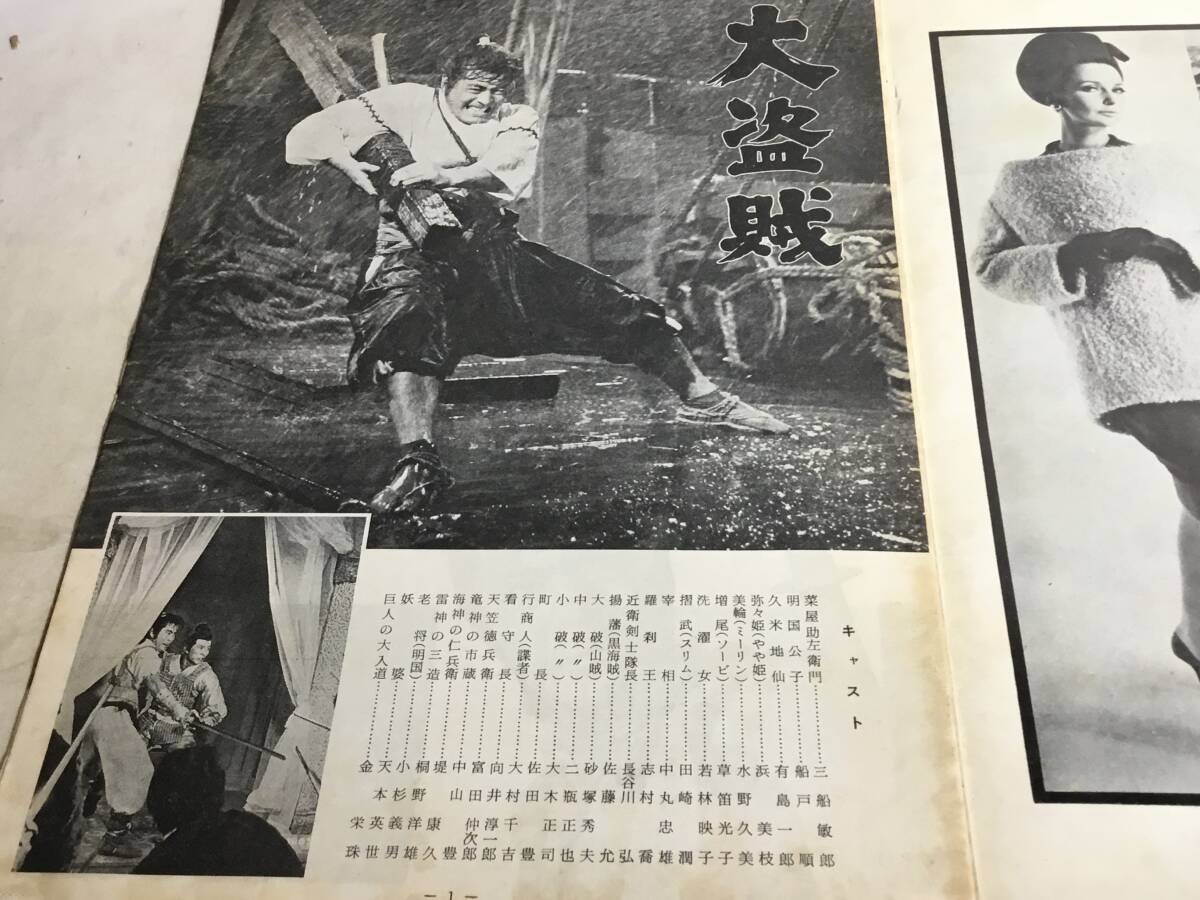 大盗賊
キャスト
菜屋助左衛門………三船敏郎
明国公子………船戸順
久米地仙………有島一郎
弥々姫(やや姫)………浜美枝
美輪(ミーリン)………水野久美
増尾(ソービ)………草笛光子
洗濯女………若林映子
摺武(スリム)………田崎潤
宰相………中丸忠雄
羅刹王………志村喬
近衛剣士隊長………長谷川弘
揚藩(黒海賊)………佐藤允
大破(山賊)………砂塚秀夫
中破(〃)………二瓶正也
小破(〃)………大木正司
町長………佐田豊
行商人(諜者)………大村千吉
看守長………向井淳一郎
天笠徳兵衛………富田仲次郎
竜神の市蔵………中山豊
海神の仁兵衛………堤康久
雷神の三造………桐野洋雄
老将(明国)………小杉義男
妖婆………天本英世
巨人の大入道………金栄珠
—1—